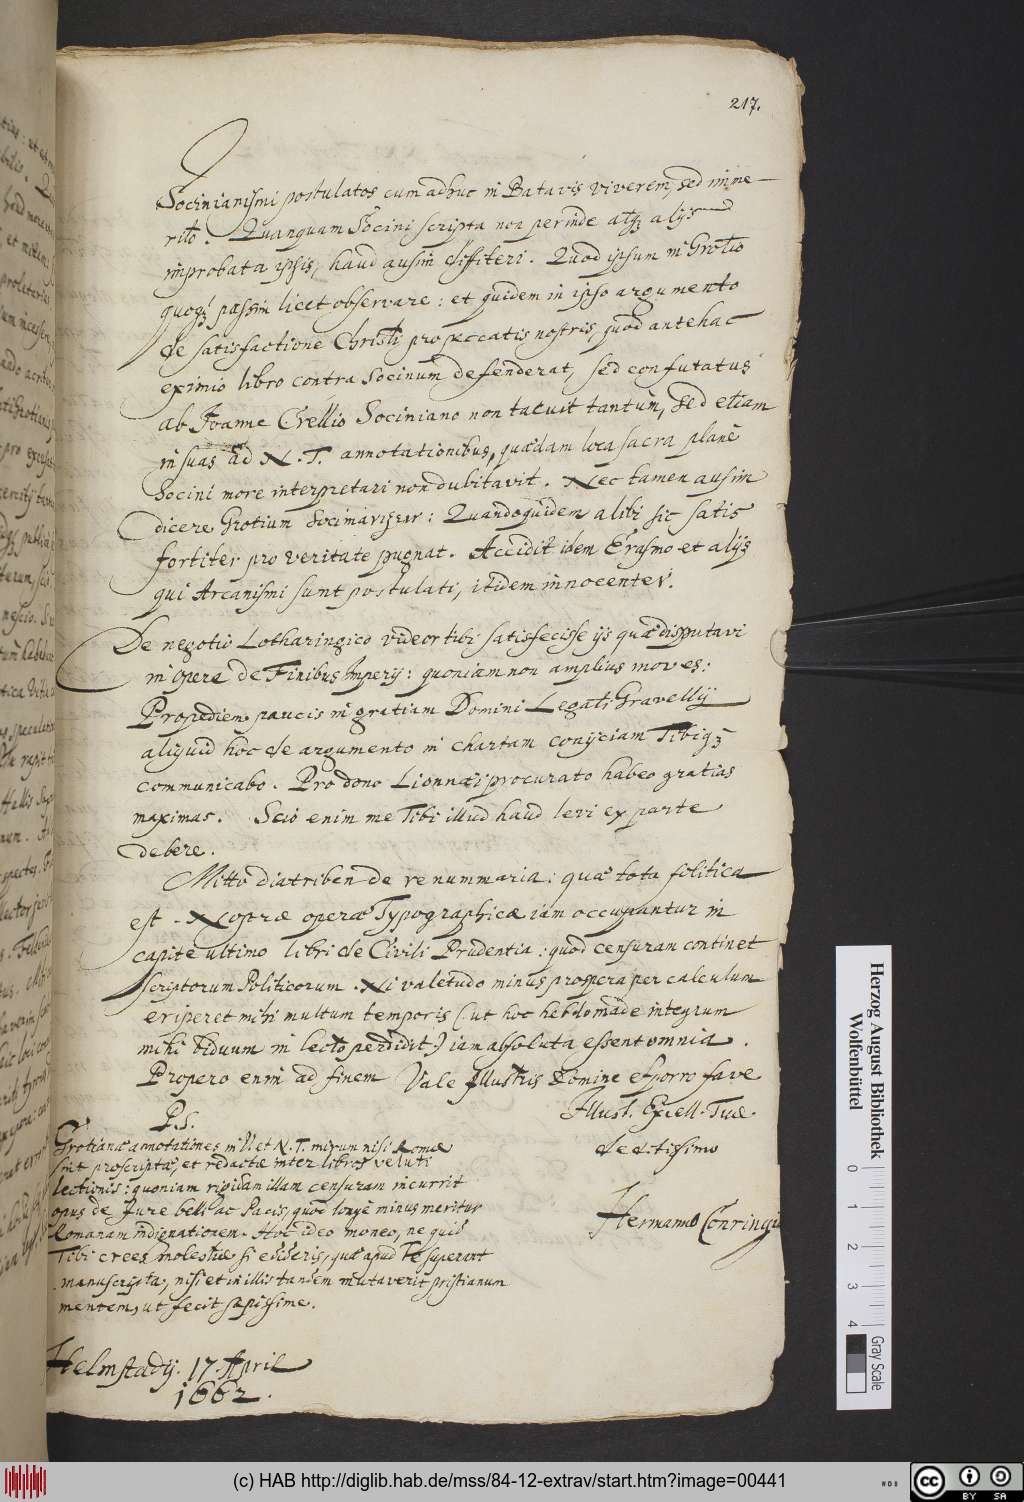 217.
Socinianismi postulatos cum adhuc in Batavis viverem, sed imme-
rito. Quanquam Socini scripta non perinde atq; alijs
improbata ipsis, haud ausim diffiteri. Quod ipsum in Grotio
quoq; passim licet observare: et quidem in ipso argumento
de satisfactione Christi pro peccatis nostris, quod antehac
eximio libro contra Socinum defenderat, sed confutatus
ab Joanne Crellio Sociniano non tacuit tantum, sed etiam
in suas ad N. T. annotationibus, quædam loca sacra planè
Socini more interpretari non dubitavit. Nec tamen ausim
dicere Grotium : Quandoquidem alibi sic satis
fortiter pro veritate pugnat. Accidit idem Erasmo et alijs
qui Arianismi sunt postulati, itidem innocentes.
De negotio Lotharingico videor tibi satisfecisse ijs quæ disputavi
in opere de Finibus Imperij: quoniam non amplius moves.
Propediem paucis in gratiam Domini Legati Gravellij
aliquid hoc de argumento in chartam conijciam Tibiq;
communicabo. Pro dono Lionnæi procurato habeo gratias
maximas. Scio enim me Tibi illud haud levi ex parte
debere.
Mitto diatriben de re nummaria: quæ tota politica
est. Nostræ operæ Typographicæ iam occupantur in
capite ultimo libri de Civili Prudentia: quod censuram continet
scriptorum Politicorum. Ni valetudo minus prospera per calculum
eriperet mihi multum temporis (ut hoc hebdomade integrum
mihi biduum in lecto perdidit) iam absoluta essent omnia.
Propero enim ad finem Vale Illustris Domine et porro fave
Illust. Excell. Tuæ
deditissimo
Hermanno Conringio
P.S.
Grotianæ annotationes in V. et N. T. mirum nisi Romæ
sint proscriptæ, et redactæ inter libros vetuti
lectionis: quoniam rigidam illam censuram incurrit
opus de Jure belli ac Pacis, quod longè minus meritur
Romanam indignationem. Hoc ideo moneo, ne quid
Tibi crees molestiæ si edideris, quæ apud Te superant
manuscripta, nisi et in illis tandem mutaverit pristinam
mentem, ut fecit sæpissime.
Helmstadij. 17. April
1662.
Herzog August Bibliothek
Wolfenbüttel
0 1 2 3 4
Gray Scale
(c) HAB http://diglib.hab.de/mss/84-12-extrav/start.htm?image=00441
cc BY SA